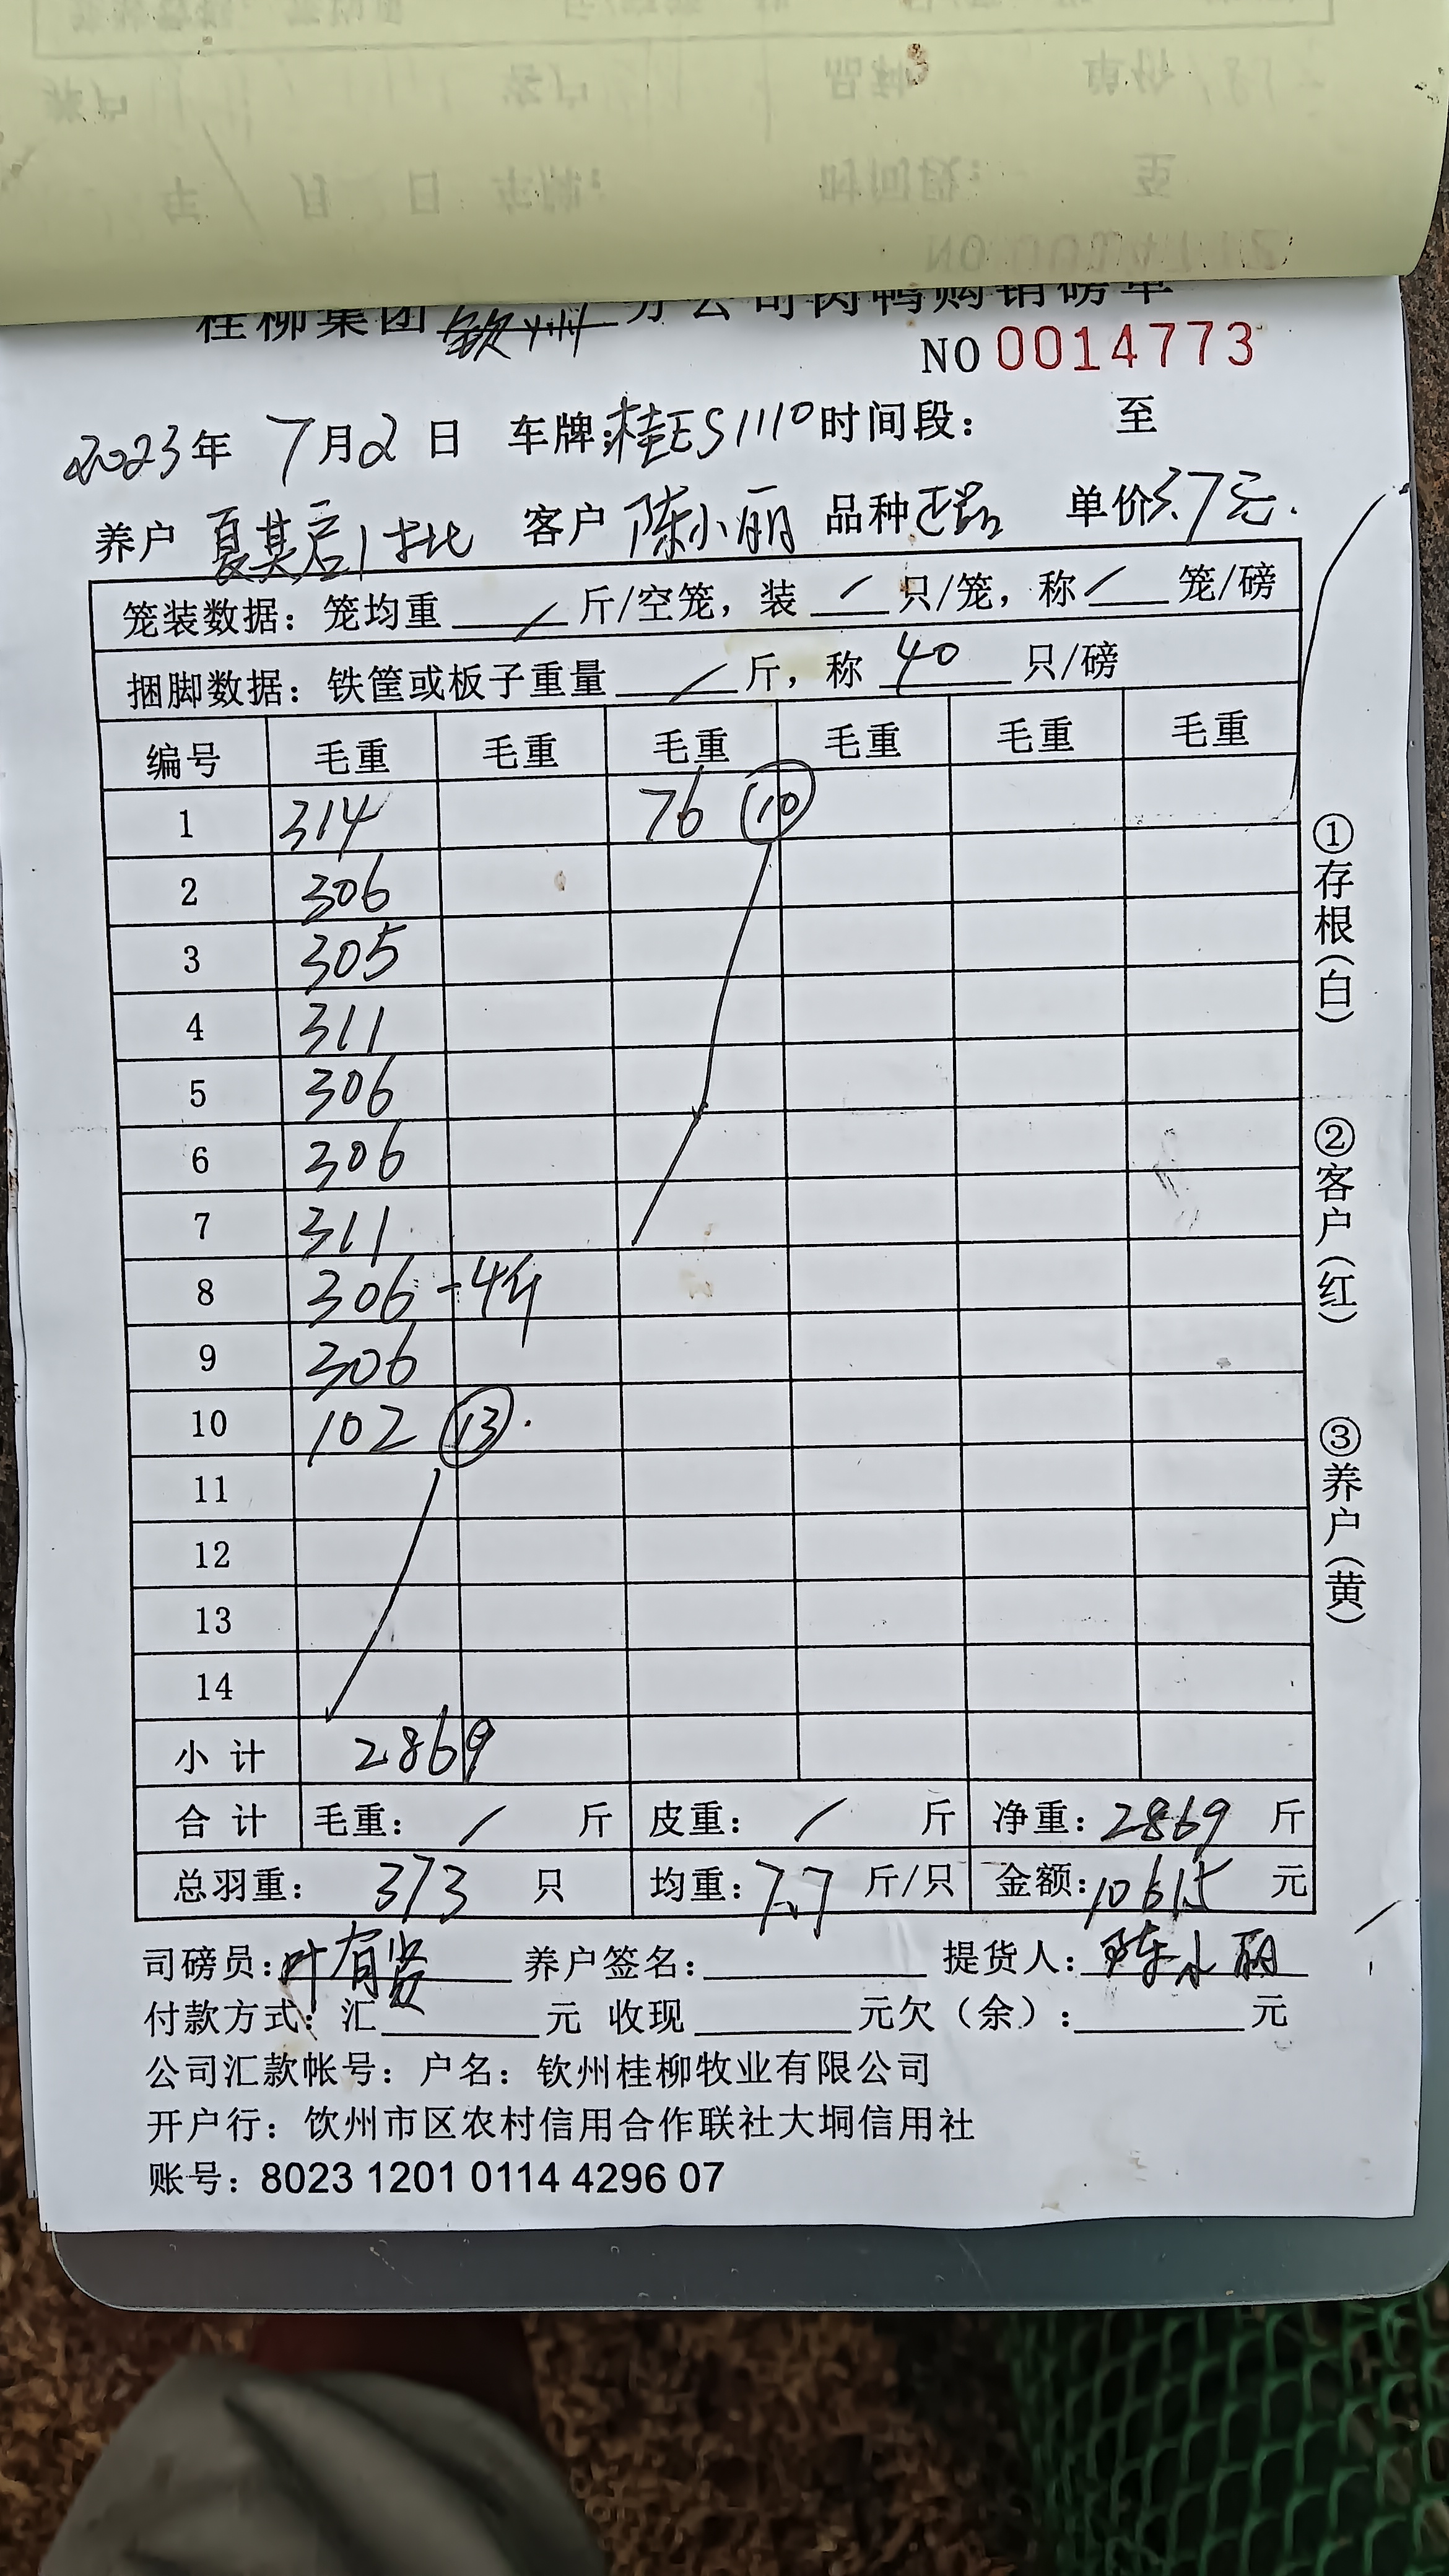 桂柳集团钦州分公司肉鸭购销磅单
NO 0014773
2023年 7月2日 车牌:桂ES1110 时间段： 至
养户 夏其启1批 客户 陈小丽 品种 正品 单价3.7元.
笼装数据：笼均重 / 斤/空笼，装 / 只/笼，称 / 笼/磅
捆脚数据：铁筐或板子重量 / 斤，称 40 只/磅
编号 毛重 毛重 毛重 毛重 毛重 毛重
1 314 76 ⑩
2 306
3 305
4 311
5 306
6 306
7 311
8 306 -4斤
9 306
10 102 ⑬.
11
12
13
14
小计 2869
合计 毛重： / 斤 皮重： / 斤 净重：2869 斤
总羽重： 373 只 均重：7.7 斤/只 金额：10615 元
司磅员：叶有贤 养户签名： 提货人：陈小丽
付款方式：汇 元 收现 元欠（余）： 元
公司汇款帐号：户名：钦州桂柳牧业有限公司
开户行：饮州市区农村信用合作联社大垌信用社
账号：8023 1201 0114 4296 07
①存根（白）
②客户（红）
③养户（黄）